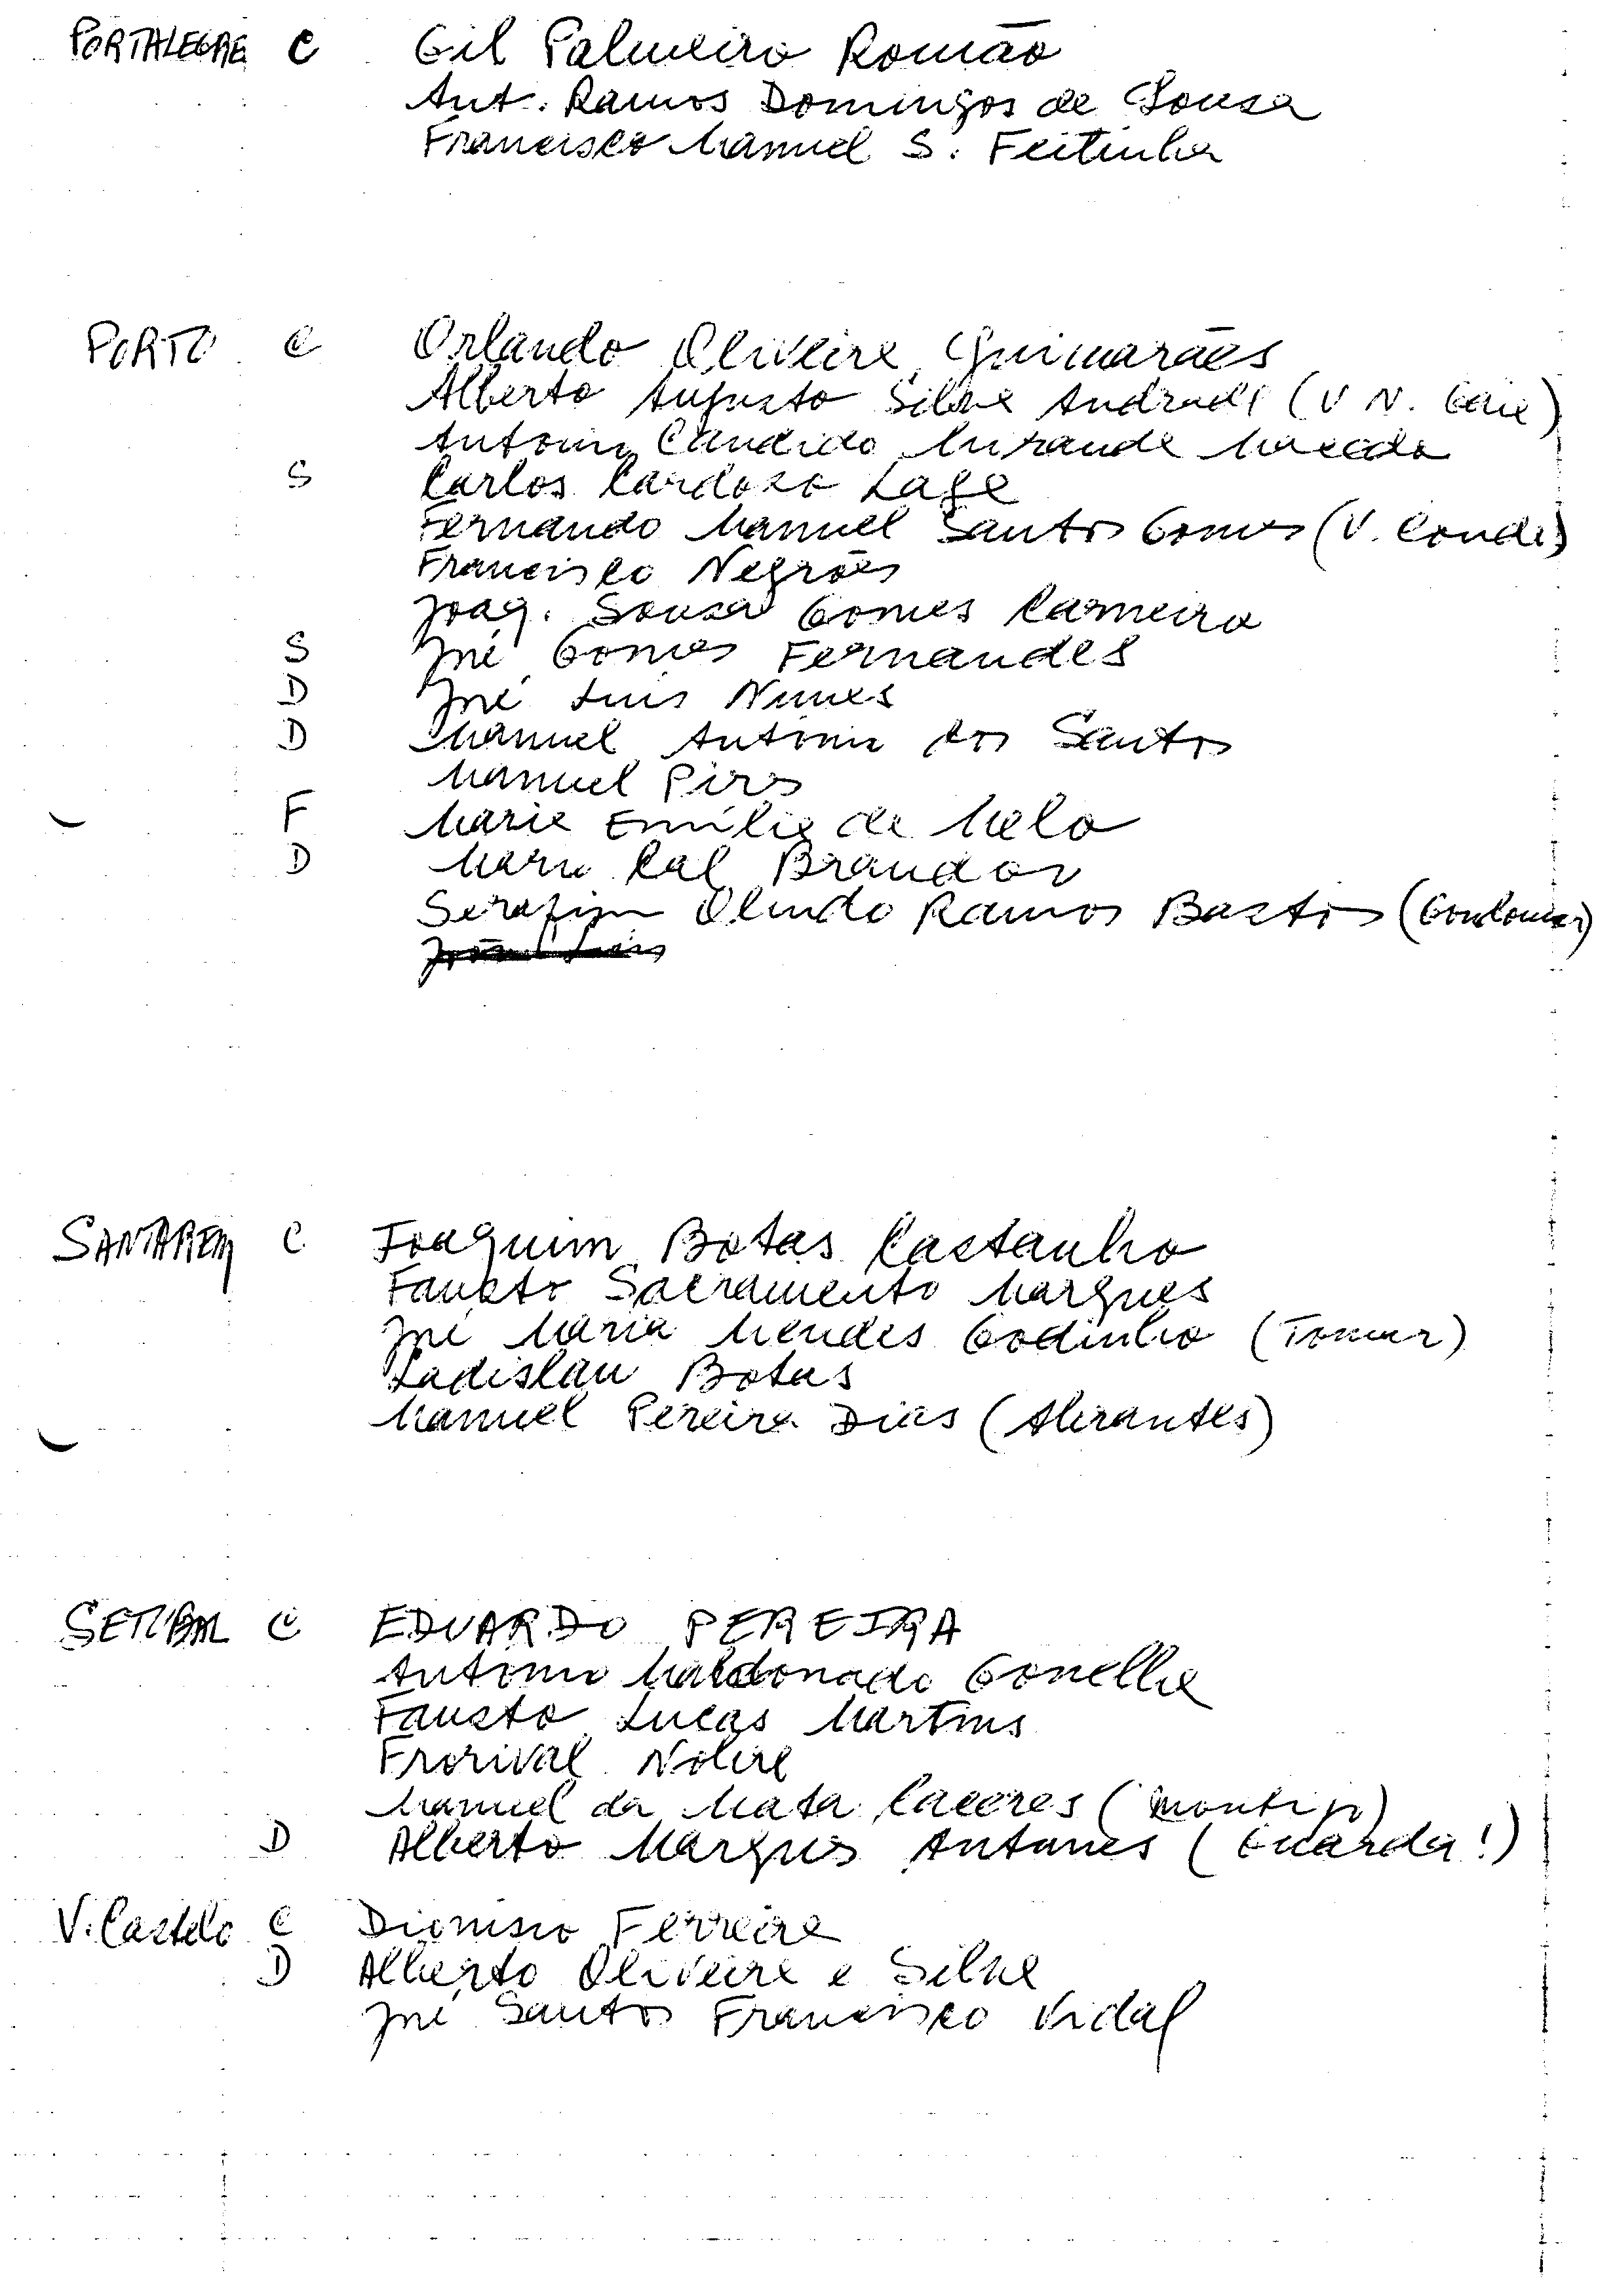 PORTALEGRE C Gil Palmeiro Romão
Ant. Ramos Domingos de Sousa
Francisco Manuel S. Feitinha
PORTO C Orlando Oliveira Guimarães
Alberto Augusto Silva Andrade (V N. Gaia)
Antonio Candido Miranda Macedo
S Carlos Cardoso Lage
Fernando Manuel Santos Gomes (V. Conde)
Francisco Negrões
Joaq. Sousa Gomes Carneiro
S José Gomes Fernandes
D José Luis Nunes
D Manuel Antonio dos Santos
Manuel Pires
F Maria Emília de Melo
D Mario Cal Brandão
Serafim Olindo Ramos Bastos (Gondomar)
SANTAREM C Joaquim Botas Castanho
Fausto Sacramento Marques
José Maria Mendes Godinho (Tomar)
Ladislau Botas
Manuel Pereira Dias (Abrantes)
SETUBAL C EDUARDO PEREIRA
Antonio Maldonado Gonelha
Fausto Lucas Martins
Frorival Nobre
Manuel da Mata Caceres (Montijo)
D Alberto Marques Antunes (Guarda!)
V. Castelo C Dionisio Ferreira
D Alberto Oliveira e Silva
José Santos Francisco Vidal